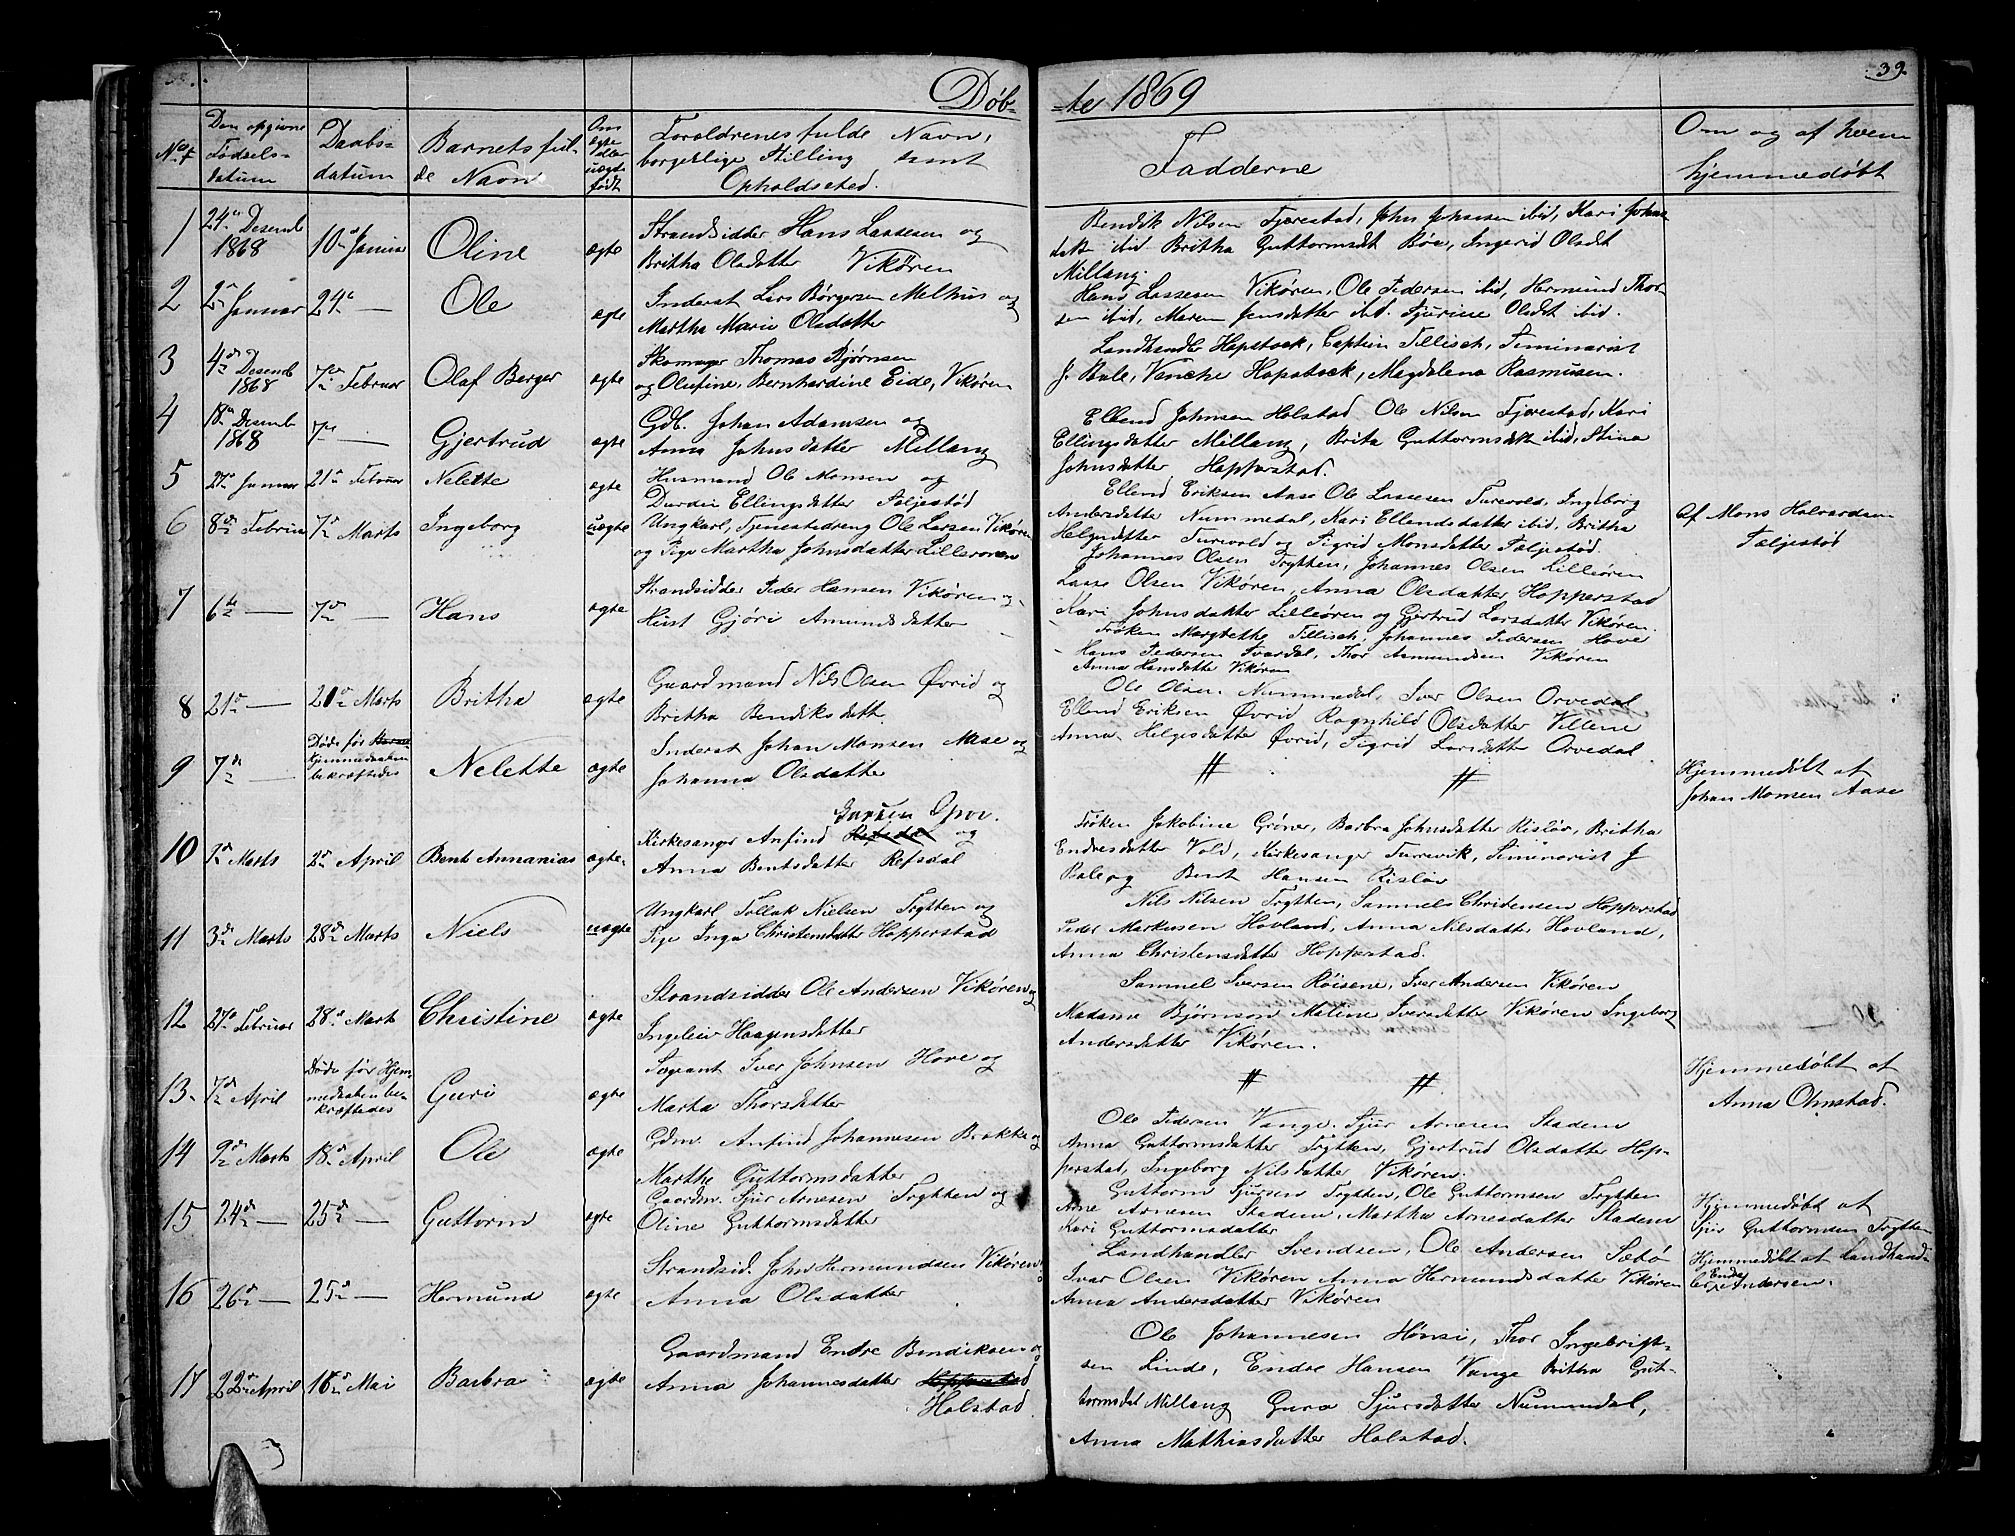 39
Döb- te 1869
No
Den opgivne Fødselsdatum
Daabsdatum
Barnets fulde Navn
Om ægte eller uægte født
Forældrenes fulde Navn, borgerlige Stilling samt Opholdssted.
Fadderne
Om og af hvem hjemmedøbt
1
24de Desemb 1868
10de Januar
Oline
ægte
Strandsidder Hans Lassesen og
Britha Olsdatter Vikören
Bendik Nilsen Fjærestad, John Johnsen ibid, Kari Johns
datt ibid Britha Guttormsdt Böe, Ingerid Olsdt
Millang.
2
2den Januar
24de —
Ole
ægte
Inderst Lars Börgersen Melhus og
Martha Marie Olsdatter
Hans Lassesen Vikören, Ole Pedersen ibid, Hermund Thor-
sen ibid, Maren Jensdatter ibd. Sjurine Olsdt ibid.
3
4de Desemb 1868
7de Februar
Olaf Berger
ægte
Skomager Thomas Bjørnsen
og Olufine, Bernhardine Eide, Vikören
Landhandler Hopstock, Captein Tillisch, Seminarist
J. Bale, Vencke Hopstock, Magdalena Rasmusen.
4
18de Desemb 1868
7de —
Gjertrud
ægte
Gdb. Johan Adamsen og
Anna Johnsdatter Millang
Ellend Johnsen Holstad Ole Nilsen Fjærestad, Kari
Ellingsdatter Millang, Brita Guttormsdtt ibid, Stina
Johnsdatter Hopperstad.
5
27de Januar
21de Februar
Nelette
ægte
Husmand Ole Monsen og
Durdei Ellingsdatter Sæljestöd
Ellend Eriksen Aase Ole Lassesen Turvold, Ingeborg
Andersdatter Nummedal, Kari Ellendsdatter ibid, Britha
Helgesdatter Turvold og Sigrid Monsdatter Sæljestöd.
Af Mons Halvardsen
Sæljestöd
6
8de Februar
7de Marts
Ingeborg
uægte
Ungkarl, Tjenestedreng Ole Larsen Vikören
og Pige Martha Johnsdatter Lilleören
Johannes Olsen Trytten, Johannes Olsen Lilleören
Lasse Olsen Vikören, Anna Olsdatter Hopperstad
Kari Johnsdatter Lilleören og Gjertrud Larsdatter Vikören.
7
6te —
7de —
Hans
ægte
Strandsidder Peder Hansen Vikören og
Hust Gjöri Amundsdatter
Fröken Margrethe Tillisch, Johannes Pedersen Hove
Hans Pedersen Svardal, Thor Asmundsen Vikören
Anna Hansdatter Vikören
8
21de —
21de Marts
Britha
ægte
Gaardmand Nils Olsen Övrid og
Britha Bendiksdatt
Ole Olsen Nummedal, Iver Olsen Orvedal
Ellend Eriksen Övrid Ragnhild Olsdatter Villene
Anna Helgesdatter Övrid, Sigrid Larsdatter Orvedal
9
7de —
Döde för
hjemmedaaben
bekræftedes
Nelette
ægte
Inderst Johan Monsen Aase og
Johanna Olsdatter
Hjemmedöbt af
Johan Monsen Aase
10
7de Marts
2de April
Bent Annanias
ægte.
Jensen Opov.
Kirkesanger Anfind Refsdal og
Anna Bentsdatter Refsdal
Fröken Jakobine Gröner, Barbra Johnsdatter Rislöv, Britha
Endresdatter Vold, Kirkesanger Turvik, Seminarist J
Bale og Bent Hansen Rislöv
11
3de Marts
28de Marts
Niels
uægte
Ungkarl Tollak Nielsen Trytten og
Pige Inga Christensdatter Hopperstad
Nils Nilsen Trytten, Sammels Christensen Hopperstad
Peder Markusen Hovland, Anna Nilsdatter Hovland,
Anna Christensdatter Hopperstad.
12
27de Februar
28de Marts
Christine
ægte
Strandsidder Ole Andersen Vikören og
Ingeleiv Haagensdatter
Sammel Iversen Röisene, Iver Andersen Vikören
Madame Björnson Maline Iversdatter Vikören Ingeborg
Andersdatter Vikören.
13
7de April
Döde för Hjem-
medaaben be-
kræftedes
Guri
ægte
Sergeant Iver Johnsen Hove og
Marta Thorsdatter
Hjemmedöbt af
Anna Olmstad.
14
9de Marts
18de April
Ole
ægte
Gdm. Anfind Johannesen Brekke og
Marthe Guttormsdatter
Ole Pedersen Vange. Sjur Arnesen Stadem
Anna Guttormsdatter Trytten, Gjertrud Olsdatter Hop-
perstad, Ingeborg Nilsdatter Vikören.
15
24de —
25de —
Guttorm
ægte
Gaardm. Sjur Arnesen Trytten og
Oline Guttormsdatter
Guttorm Sjursen Trytten, Ole Guttormsen Trytten
Arne Arnesen Stadem, Martha Arnesdatter Stadem
Kari Guttormsdatter
Hjemmedöbt af
Sjur Guttormsen Trytten
16
26de —
25de —
Hermund
ægte
Strandsid. John Hermundsen Vikören og
Anna Olsdatter
Landhandler Svendsen, Ole Andersen Sæbö
Ivar Olsen Vikören Anna Hermundsdatter Vikören
Anna Andersdatter Vikören
Hjemmedöbt af Landhand-
ler Endre Andersen.
17
22de April
16de Mai
Barbra
ægte
Gaardmand Endre Bendiksen og
Anna Johannesdatter Hopperstad
Holstad
Ole Johannesen Hönsi, Thor Ingebrigt-
sen Linde, Endre Hansen Vange Britha Gut-
tormsdat Millang Guro Sjursdatter Nummedal,
Anna Mathiasdatter Holstad.